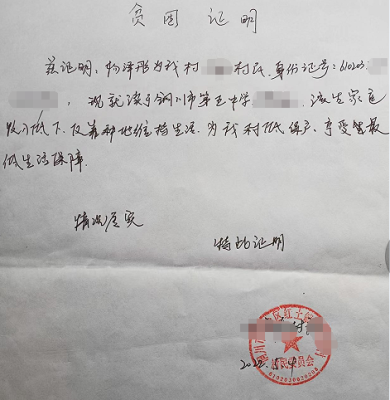 贫困证明
兹证明,杨泽彤为我村 村民,身份证号:610203
,现就读于铜川市第五中学 ,该生家庭
收入低下,仅靠种地维持生活,为我村低保户,享受最
低生活保障。
情况属实
特此证明
村民委员会